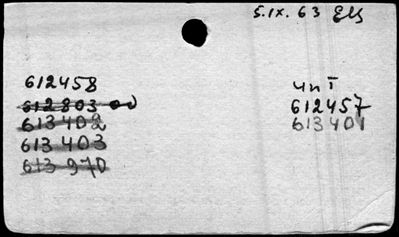 5.IX.63
612458
612803
613402
613403
613970
612457
613401